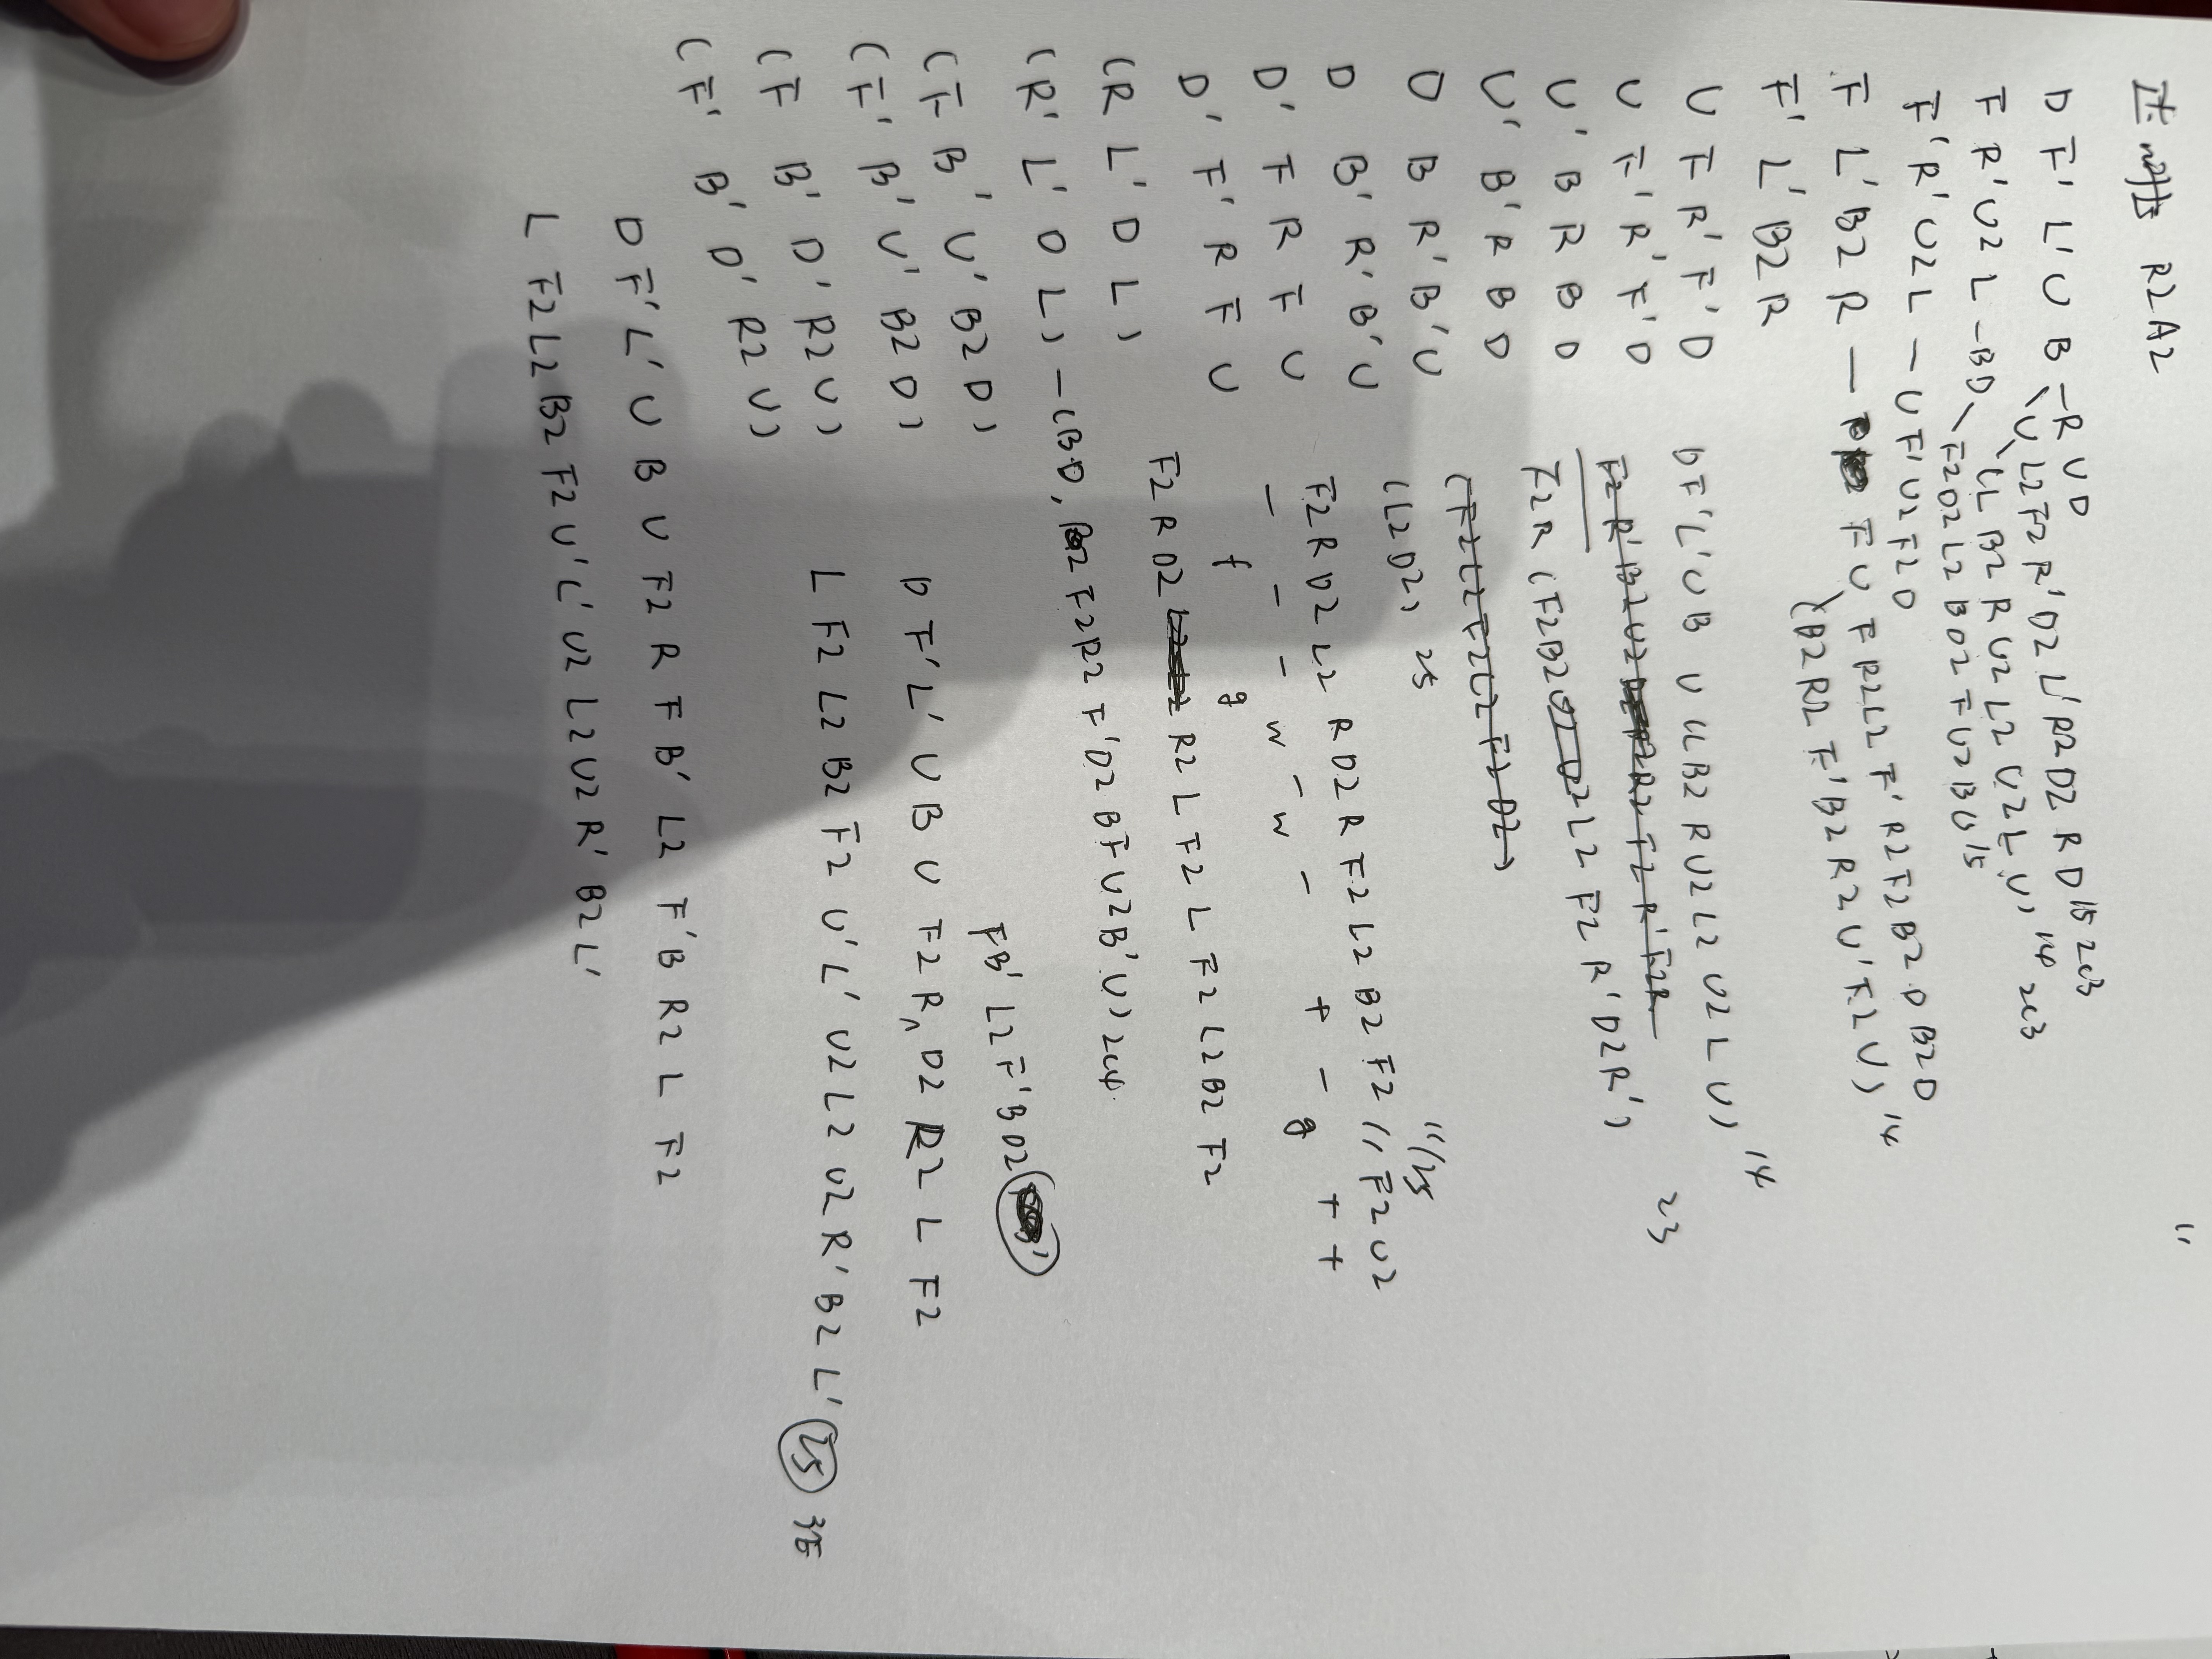 R2A2
D F' L' U B - R U D
U L2 F2 R' D2 L' R2 D2 R D 15 2c3
F R' U2 L - B D
(L B2 R U2 L2 U2 L U) 14 2c3
F2 D2 L2 B D2 F U2 B U 15
F' R' U2 L - U F' U2 F2 D
F L' B2 R - F U F R2 L2 F' R2 F2 B2 D B2 D
(B2 R2 F' B2 R2 U' F2 U) 14
F' L' B2 R
U F R' F' D
D F' L' U B U (L B2 R U2 L2 U2 L U) 14
U F' R' F' D
U' B R B D
F2 R (F2 B2 U2 D2 L2 F2 R' D2 R') 23
U' B' R B D
(F2 L2 F2 L2 F2 D2)
D B R' B' U
(L2 D2) 25
D B' R' B' U
F2 R D2 L2 R D2 R F2 L2 B2 F2 // F2 U2
11/25
D' F R F U
- - - w - w - + - g + +
D' F' R F U
f g
F2 R D2 R2 L F2 L F2 L2 B2 F2
(R L' D L)
(R' L' D L) - (B D, B2 F2 R2 F' D2 B F U2 B' U) 2c4
(F B' U' B2 D)
F B' L2 F' B D2
(F' B' U' B2 D)
D F' L' U B U F2 R ^ D2 R2 L F2
(F B' D' R2 U)
L F2 L2 B2 F2 U' L' U2 L2 U2 R' B2 L' 25
(F' B' D' R2 U)
D F' L' U B U F2 R F B' L2 F' B R2 L F2
L F2 L2 B2 F2 U' L' U2 L2 U2 R' B2 L'